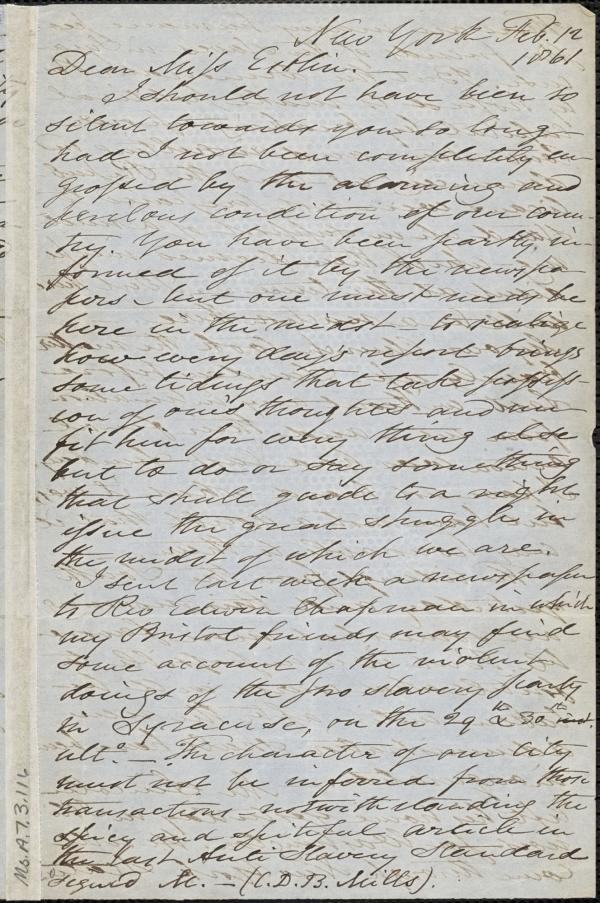 New York Feb. 12
1861
Dear Miss Estlin.
I should not have been so
silent towards you so long
had I not been completely en
grossed by the alarming and
perilous condition of our coun-
try. You have been partly in
formed of it by the newspa
pers - but one must needs be
here in the midst to realize
how every day's report brings
some tidings that take possess-
ion of one's thoughts and un
fit him for every thing else
but to do or say something
that shall guide to a right
issue the great struggle in
the midst of which we are.
I sent last week a newspaper
to Rev Edwin Chapman in which
my Bristol friends may find
some account of the violent
doings of the pro slavery party
in Syracuse, on the 29th & 30th inst.
ulto. - The character of our city
must not be inferred from those
transactions - notwithstanding the
spicy and spiteful article in
the last Anti Slavery Standard
signed M. - (C.D.B. Mills).
Ms.A.7.3.116